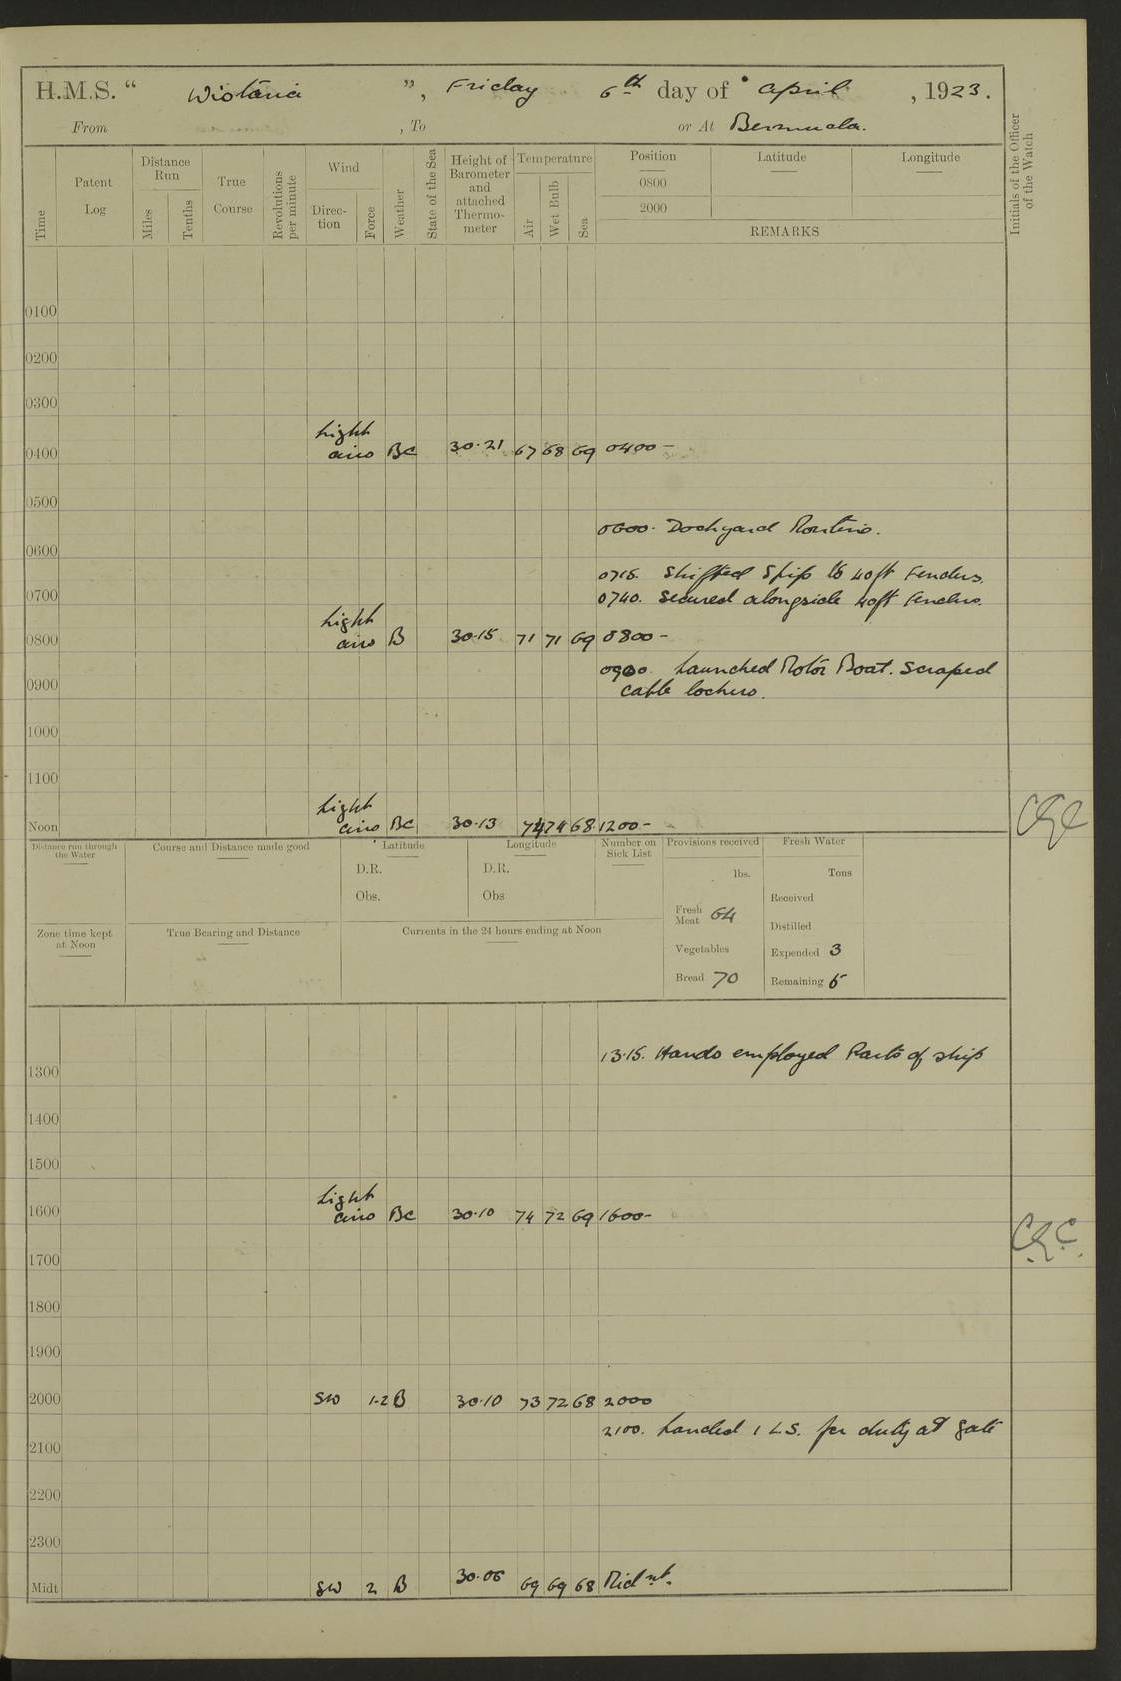 H.M.S. “ Wistaria ”, Friday 6th day of April, 1923.
From , To or At Bermuda.
Time
Patent Log
Distance Run
Miles
Tenths
True Course
Revolutions per minute
Wind
Direction
Force
Weather
State of the Sea
Height of Barometer and attached Thermometer
Temperature
Air
Wet Bulb
Sea
Position
0800
2000
Latitude
Longitude
REMARKS
Initials of the Officer of the Watch
0100
0200
0300
0400 Light airs BC 30.21 67 68 69 0400 -
0500
0600. Dockyard Routine.
0600
0715. Shifted Ship to 40ft Fenders.
0700 0740. Secured alongside 40ft Fenders.
0800 Light airs B 30.15 71 71 69 0800 -
0900 Launched Motor Boat. Scraped
0900 cable lockers.
1000
1100
Noon Light airs BC 30.13 74 74 68 1200 -
Distance run through the Water
Course and Distance made good
Latitude
D.R.
Obs.
Longitude
D.R.
Obs
Number on Sick List
Provisions received
lbs.
Fresh Meat 64
Vegetables
Bread 70
Fresh Water
Tons
Received
Distilled
Expended 3
Remaining 5
Zone time kept at Noon
True Bearing and Distance
Currents in the 24 hours ending at Noon
13.15. Hands employed Parts of ship
1300
1400
1500
1600 Light airs BC 30.10 74 72 69 1600 -
1700
1800
1900
2000 SW 1-2 B 30.10 73 72 68 2000
2100. Landed 1 L.S. for duty at gate
2100
2200
2300
Midt SW 2 B 30.06 69 69 68 Midnt.